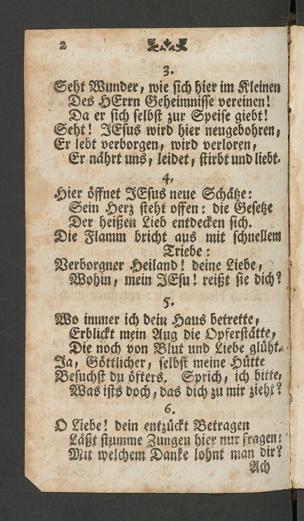 2
3.
Seht Wunder, wie sich hier im Kleinen
Des HErrn Geheimnisse vereinen!
Da er sich selbst zur Speise giebt!
Seht! JEsus wird hier neugebohren,
Er lebt verborgen, wird verloren,
Er nährt uns, leidet, stirbt und liebt.
4.
Hier öffnet JEsus neue Schätze:
Sein Herz steht offen: die Gesetze
Der heißen Lieb entdecken sich.
Die Flamm bricht aus mit schnellem
Triebe:
Verborgner Heiland! deine Liebe,
Wohin, mein JEsu! reißt sie dich?
5.
Wo immer ich dein Haus betrette,
Erblickt mein Aug die Opferstätte,
Die noch von Blut und Liebe glüht.
Ja, Göttlicher, selbst meine Hütte
Besuchst du öfters. Sprich, ich bitte,
Was ists doch, das dich zu mir zieht?
6.
O Liebe! dein entzückt Betragen
Läßt stumme Zungen hier nur fragen:
Mit welchem Danke lohnt man dir?
Ach